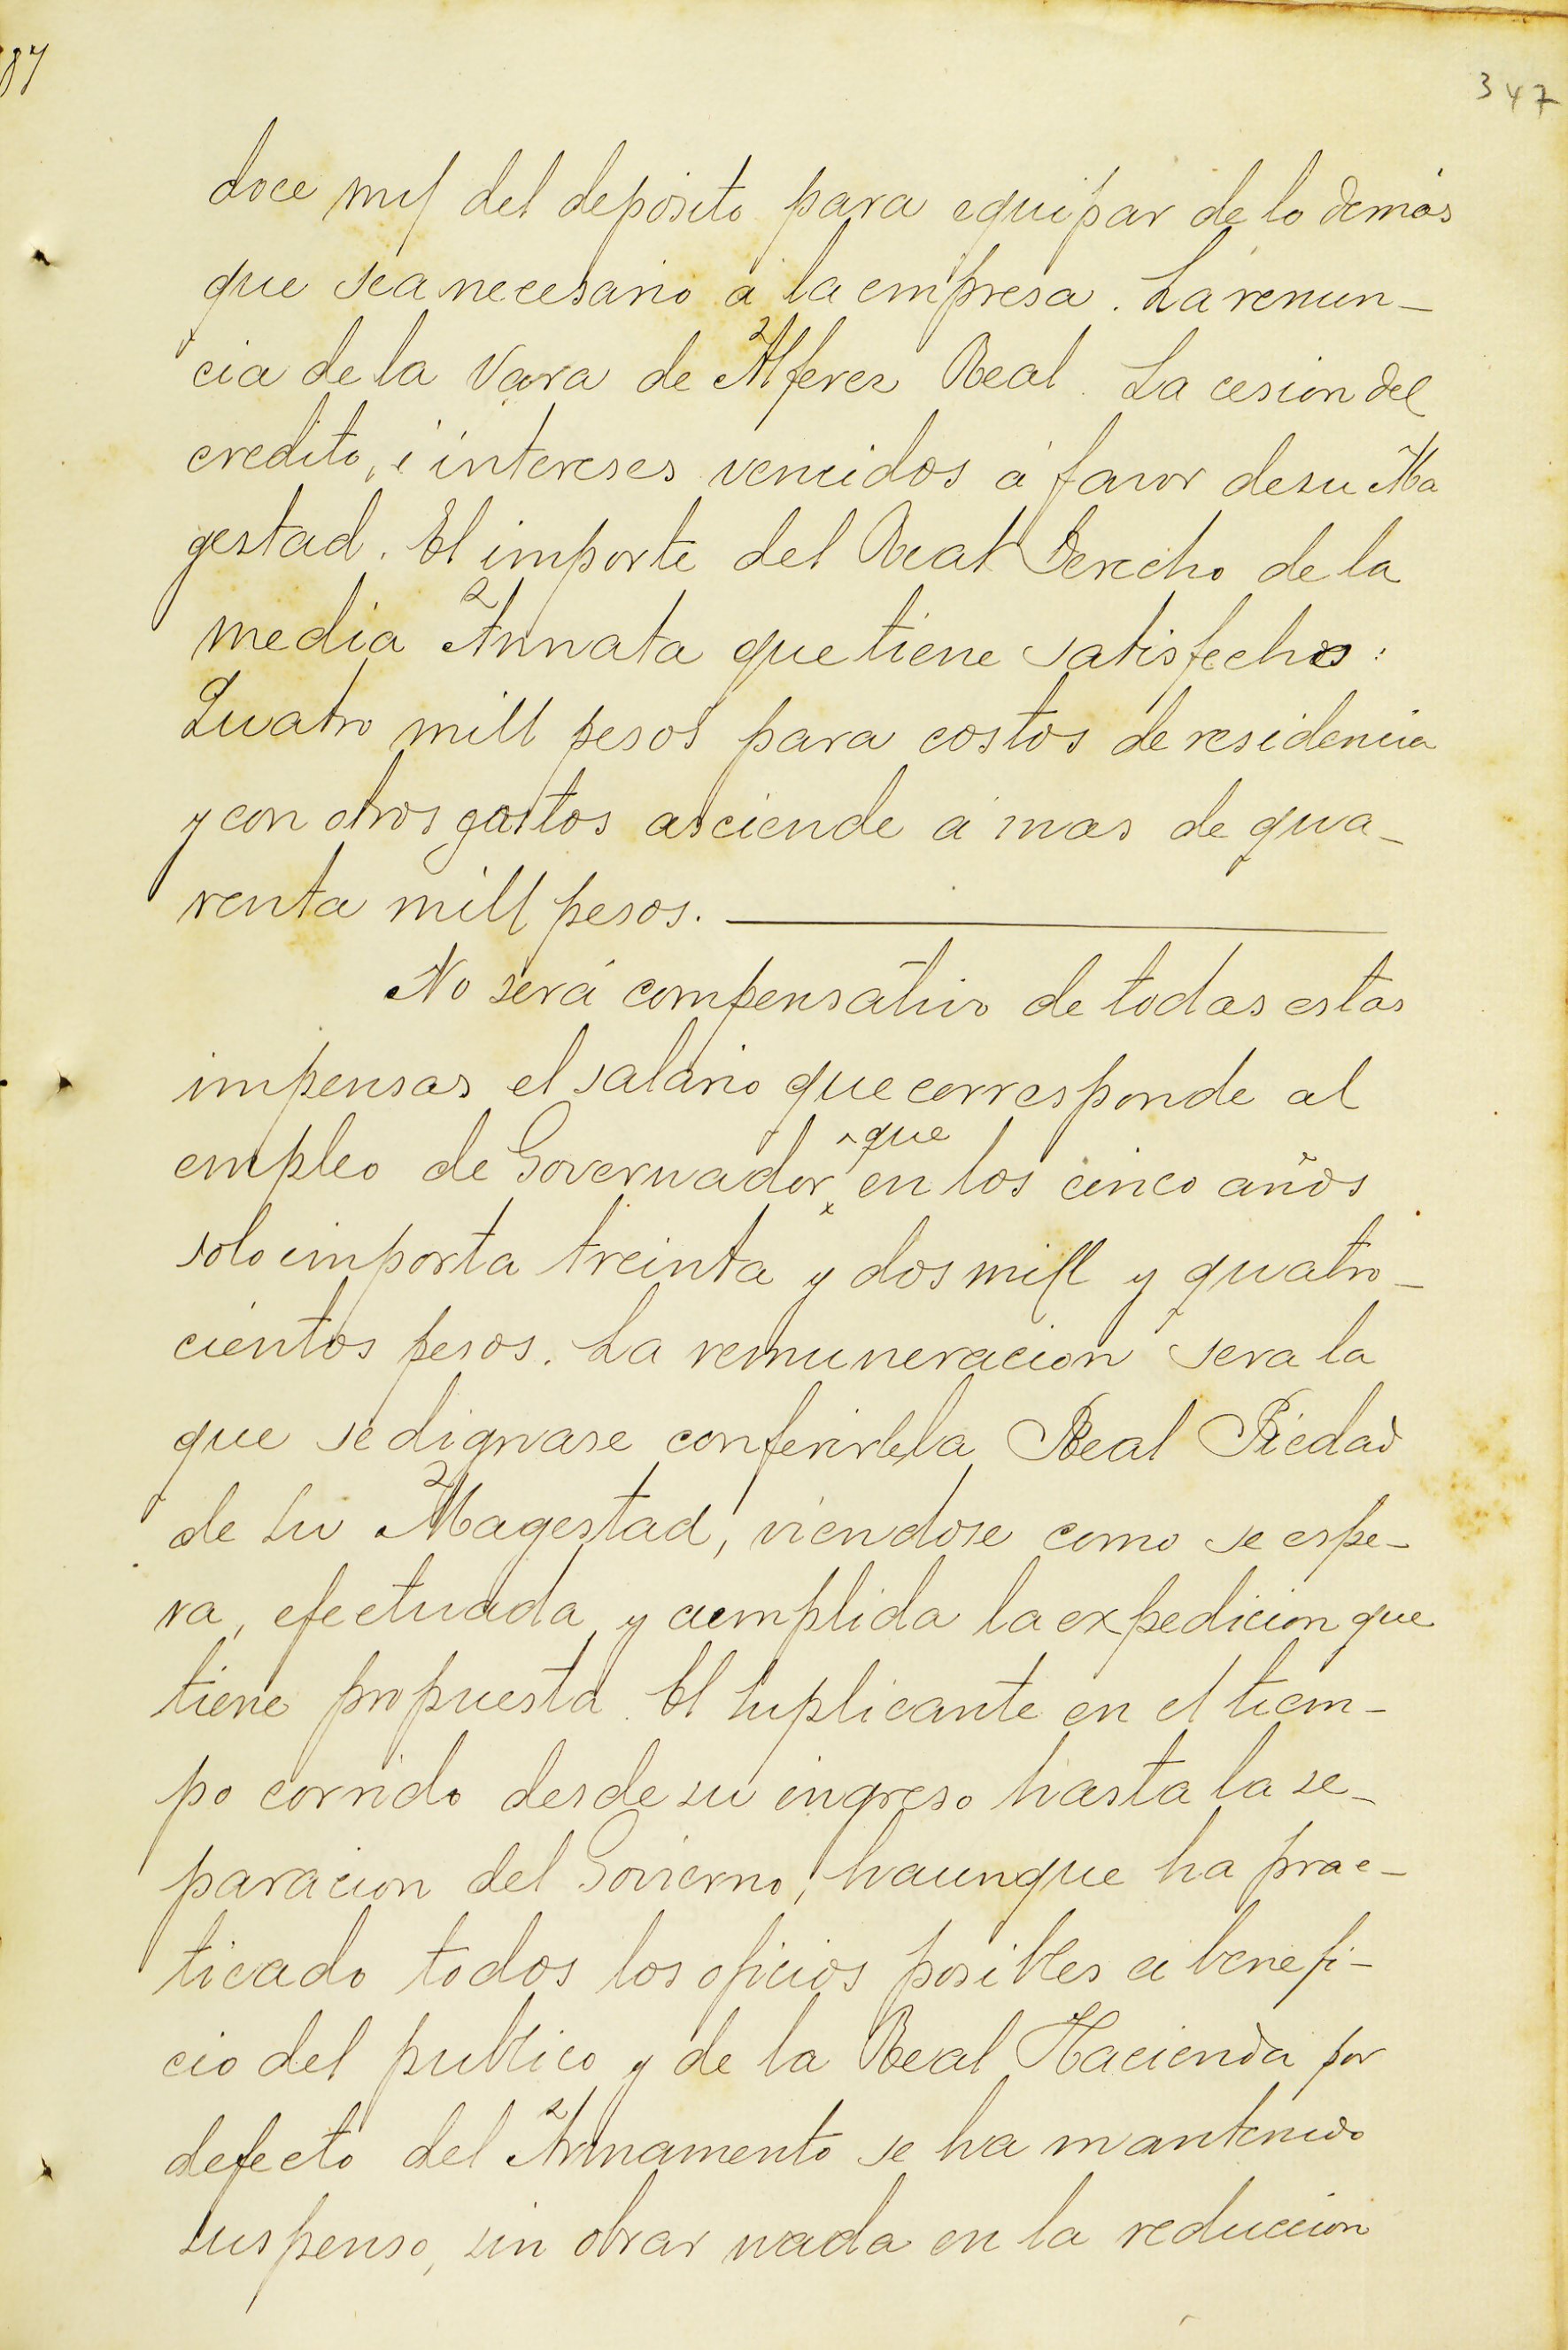 87
347
doce mil del depósito para equipar de lo demás
que sea necesario á la empresa. La renun-
cia de la Vara de Alferez Real. La cesion del
credito, é intereses vencidos á favor de su Ma
gestad. El importe del Real Derecho de la
media Annata que tiene satisfechos:
Quatro mill pesos para costos de residencia
y con otros gastos asciende á mas de qua-
renta mill pesos.
No será compensativo de todas estas
impensas el salario que corresponde al
empleo de Governador, que en los cinco años
solo importa treinta y dos mill y quatro-
cientos pesos. La remuneracion sera la
que se dignase conferirle la Real Piedad
de Su Magestad, viendose como se espe-
ra, efectuada y cumplida la expedicion que
tiene propuesta. El Suplicante en el tiem-
po corrido desde su ingreso hasta la se-
paracion del Govierno, haunque ha prac-
ticado todos los oficios posibles á benefi-
cio del publico y de la Real Hacienda por
defecto del Armamento se ha mantenido
suspenso, sin obrar nada en la reduccion